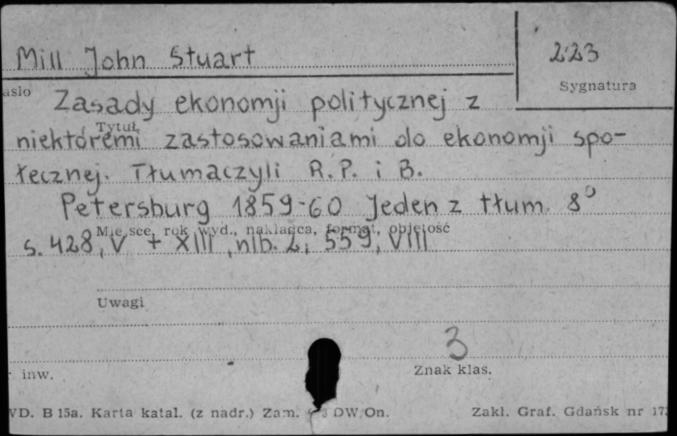 Mill John Stuart
223
Sygnatura
asło
Zasady ekonomji politycznej z
Tytuł
niektóremi zastosowaniami do ekonomji spo-
łecznej. Tłumaczyli R. P. i B.
Petersburg 1859-60 Jeden z tłum. 8°
Miejsce, rok wyd., nakładca, format, objętość
s. 428, V + XIII, nlb. 2, 559, VIII
Uwagi
3
inw.
Znak klas.
WD. B 15a. Karta katal. (z nadr.) Zam. DW/On.
Zakł. Graf. Gdańsk nr 172